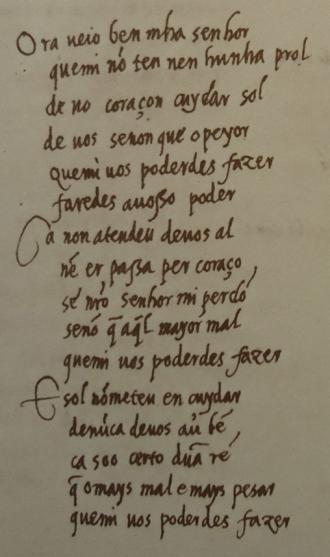 Ora ueio ben mha senhor
quemi nō ten nen hunha prol
de no coraçon cuydar sol
de uos senon que o peyor
quemi uos poderdes fazer
faredes a uosso poder
Ca non atendeu deuos al
nē er passa per coraço,
se nr̃o senhor mi perdō
senō q̄ aq̄l mayor mal
quemi uos poderdes fazer
E sol nōmeteu en cuydar
denūca deuos auer bē,
ca soo certo dūa rē
q̄ o mays mal e mays pesar
quemi uos poderdes fazer